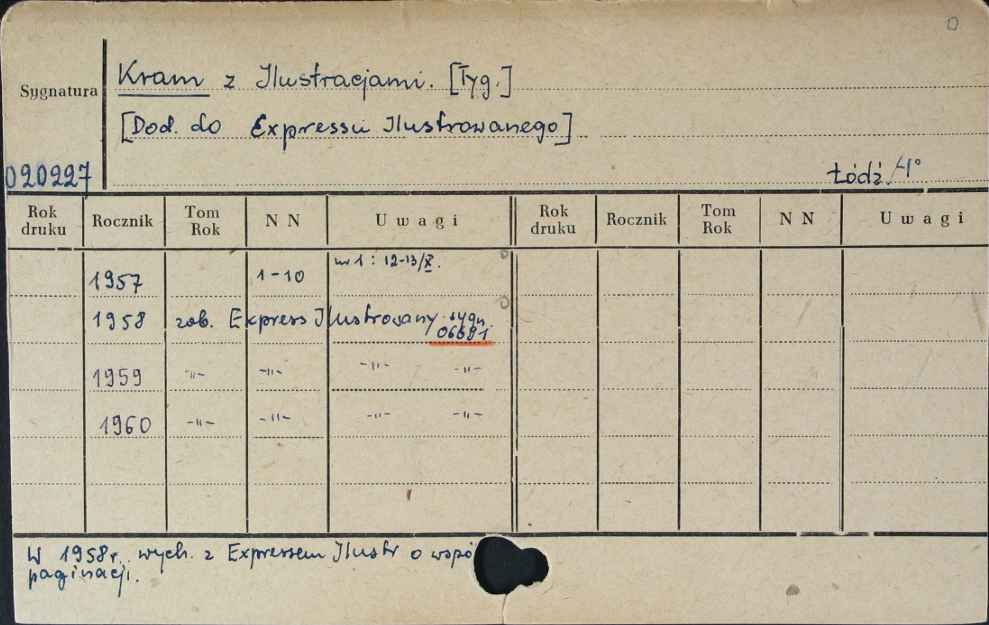 0
Sygnatura
Kram z Ilustracjami. [Tyg.]
[Dod. do Expressu Ilustrowanego]
020227
Łódź. 4°
Rok druku Rocznik Tom Rok N N Uwagi Rok druku Rocznik Tom Rok N N Uwagi
1957 1-10 nr 1: 12-13/X.
1958 zob. Express Ilustrowany sygn.
06681
1959 -"- -"- -"- -"-
1960 -"- -"- -"- -"-
W 1958r. wych. z Expressem Ilustr o wspó
paginacji.